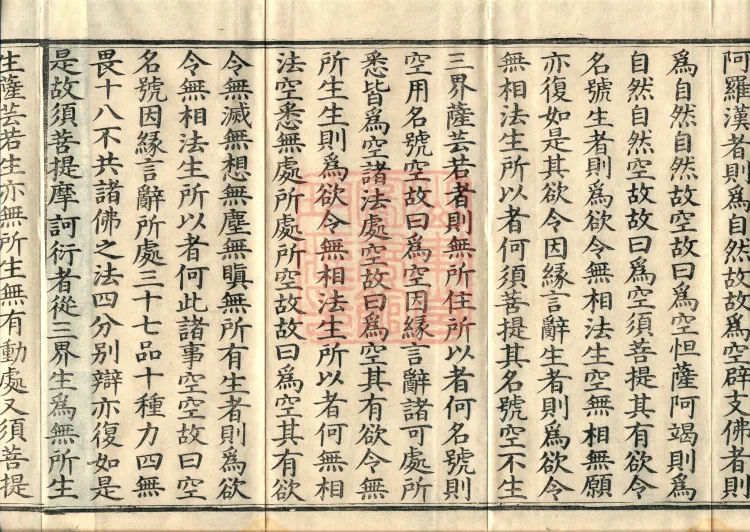 阿羅漢者則爲自然故故爲空辟支佛者則
爲自然自然故空故曰爲空怛薩阿竭則爲
自然自然空故故曰爲空須菩提其有欲令
名號生者則爲欲令無相法生空無相無願
亦復如是其欲令因緣言辭生者則爲欲令
無相法生所以者何須菩提其名號空不生
三界薩芸若者則無所住所以者何名號則
空用名號空故曰爲空因緣言辭諸可處所
悉皆爲空諸法處空故曰爲空其有欲令無
所生生則爲欲令無相法生所以者何無相
法空悉無處所處所空故故曰爲空其有欲
令無滅無想無塵無瞋無所有生者則爲欲
令無相法生所以者何此諸事空空故曰空
名號因緣言辭所處三十七品十種力四無
畏十八不共諸佛之法四分別辯亦復如是
是故須菩提摩訶衍者從三界生爲無所生
生薩芸若生亦無所生無有動處又須菩提